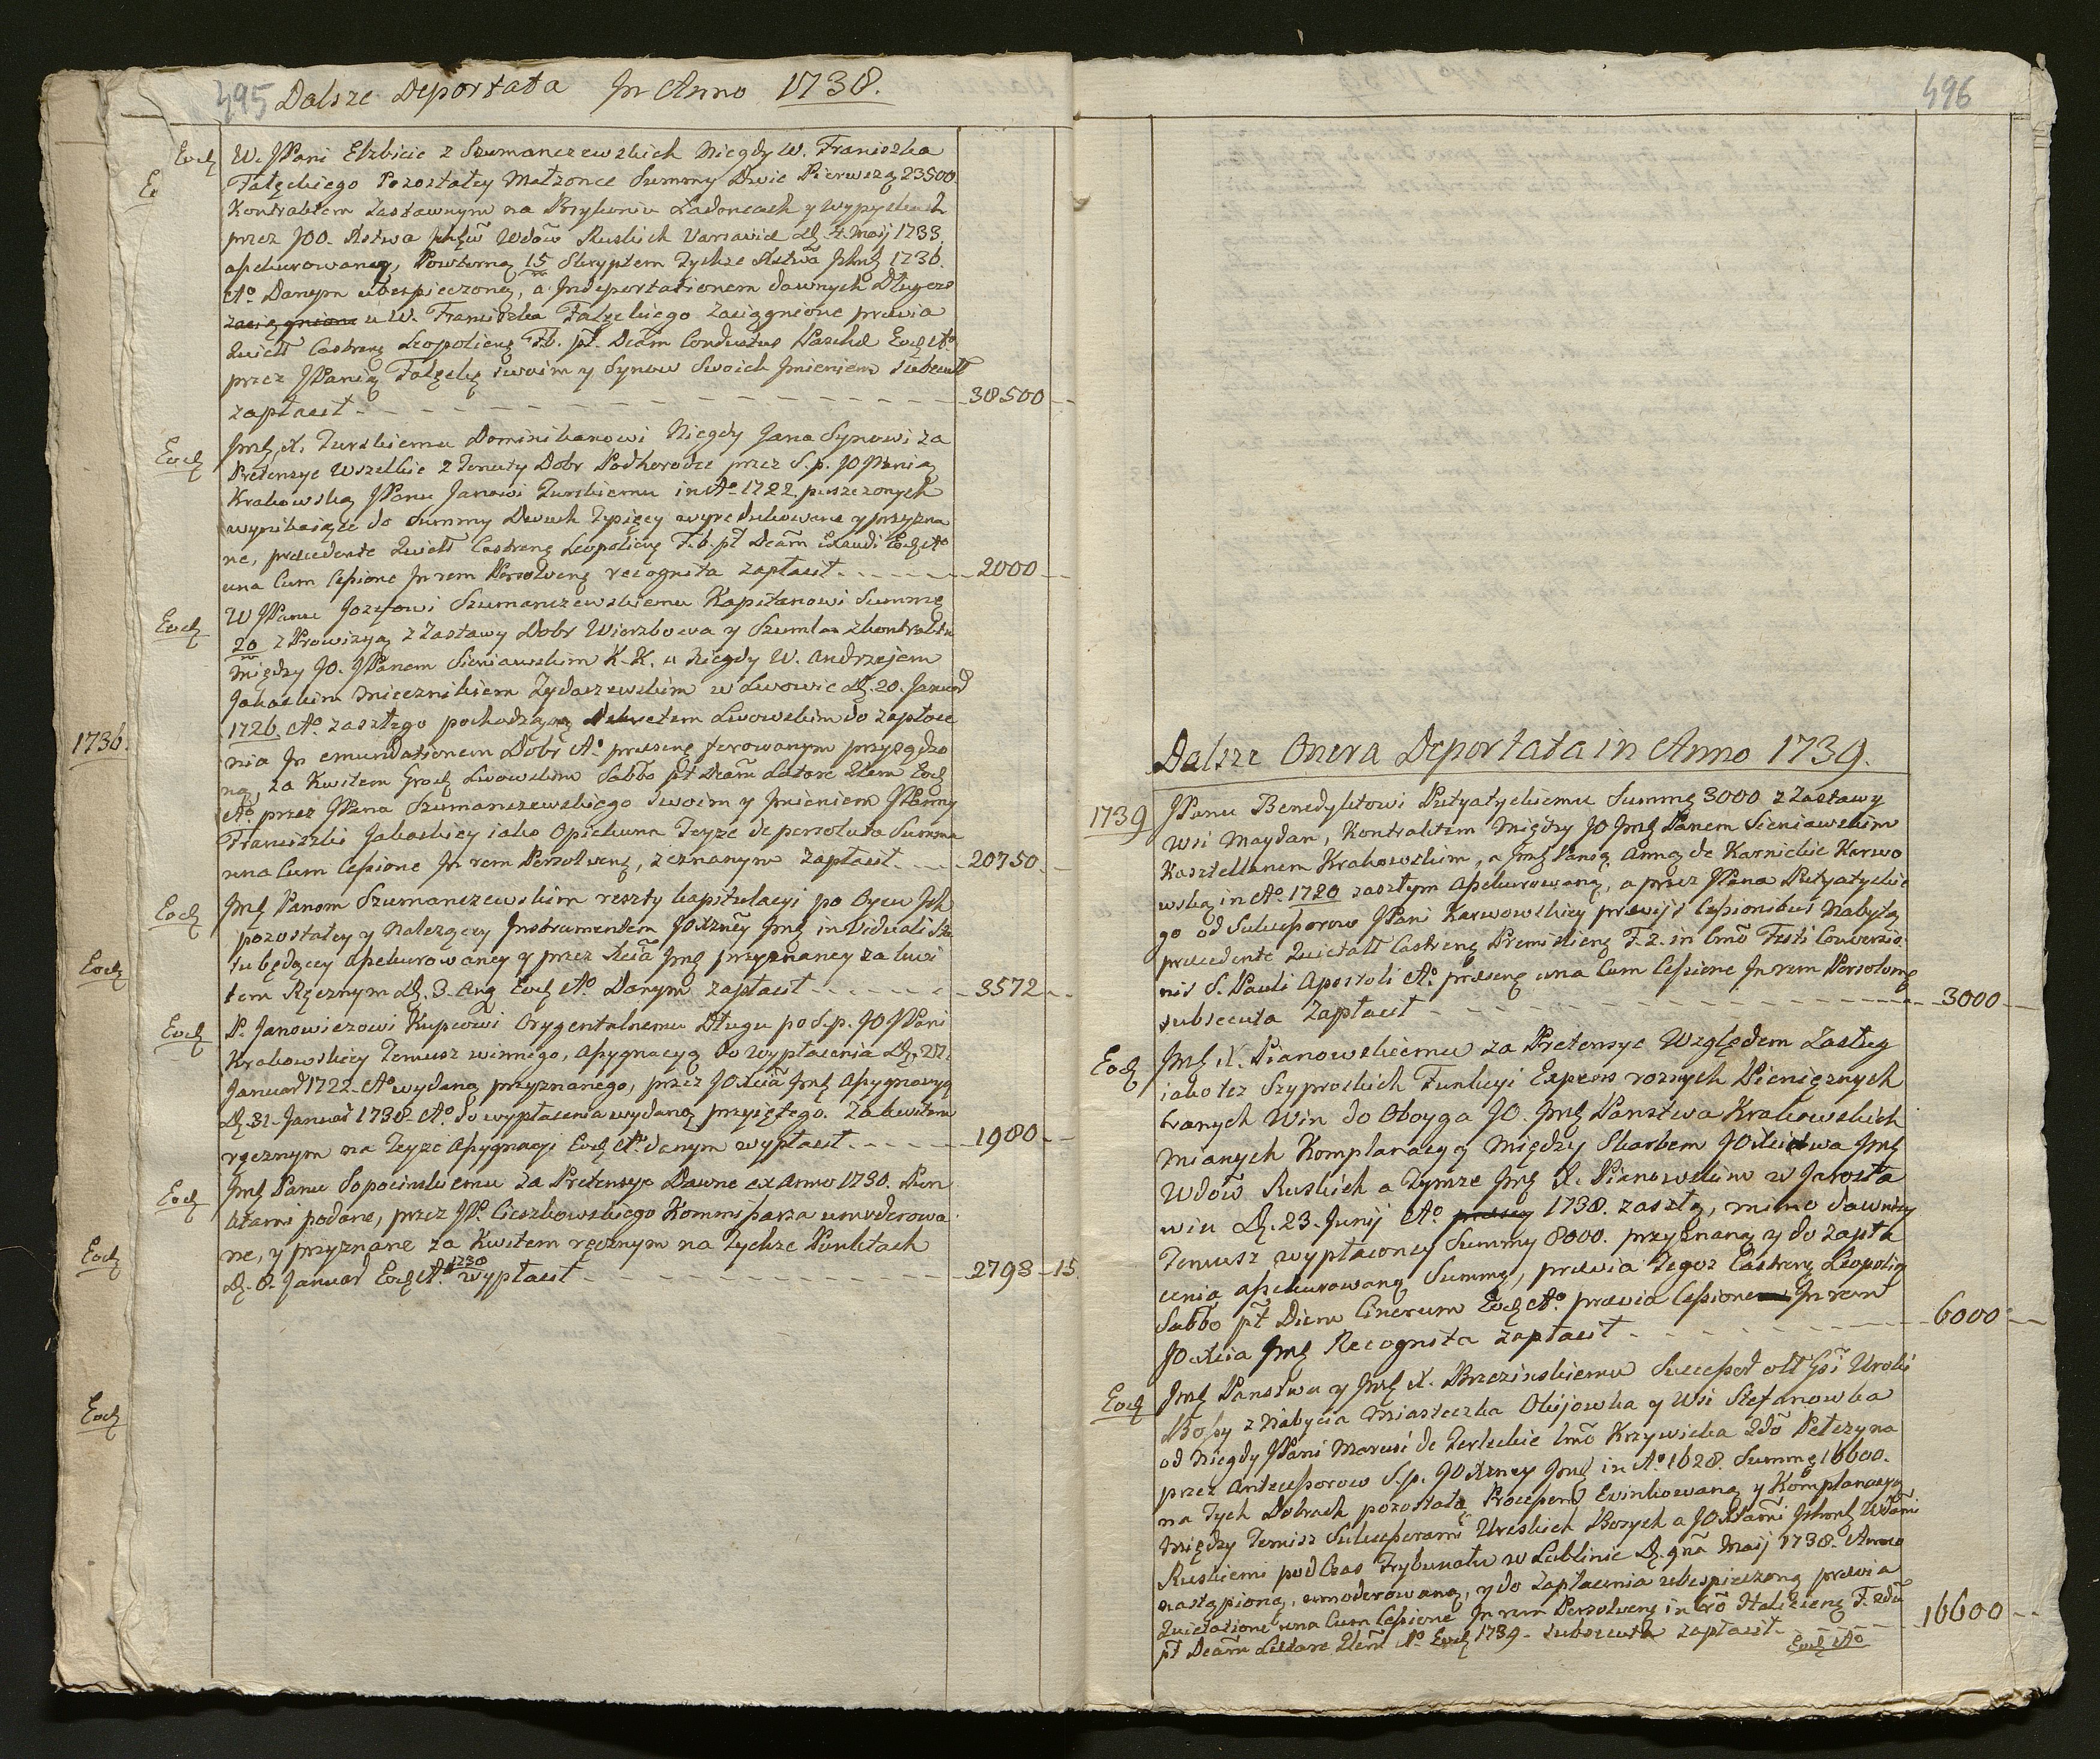 495 Dalsze Deportata In Anno 1738.
Eod W. JPani Elzbiecie z Szumanczewskich Niegdy W. Franciszka
Fałęckiego Pozostałey Małzonce Summy Dwie Pierwszą 23500.
Kontraktem Zastawnym na Brykoniu Ładoncach y Wypyskach
przez JOO. Xstwa Wdów Ruskich Varsaviæ D. 4. Maij 1733.
assekurowaną, Powtorną 15 Skryptem Tychże Xstwa Jchmć 1736.
Ao Danym ubespieczoną, a In deportationem dawnych Długow
zaciągnione u W. Franciszka Fałęckiego Zaciągnione prævia
Quiett Castreñ Leopolieñ F.6. pt. Dcam Conductus Paschæ Eod Ao
przez JPanią Fałęcką swoim y Synow Swoich Jmieniem subsecutt
zapłacił - 38500
Eod Jmć X. Turskiemu Dominikanowi Niegdy Jana Synowi za
Pretensye Wszelkie z Tenuty Dobr Podhorodce przez S.p. JO JPanią
Krakowską JPanu Janowi Turskiemu in Ao 1722. puszczonych
wynikaiące do Summy Dwuch Tysięcy wyredukowane y przyzna
ne, præcedente Quiett Castreñ Leopolieñ F.6. pt Dcam Exaudi Eod Ao
una Cum Cessione In rem Persolveñ recognita zapłacił - 2000
Eod W JPanu Jozefowi Szumanczewskiemu Kapitanowi Summę
20 z Prowizyą z Zastawy Dobr Wierzbowa y Szumlan z kontraktu
między JO. JPanem Sieniawskim K.K. a Niegdy W. Andrzejem
Jakockim Miecznikiem Zydaczewskim w Lwowie D. 20. Januar
1726. Ao zaszłego pochodzącą Dekretem Lwowskim do zapłace
nia In emundationem Dobr Ao præseñ ferowanym przysądzo
ną, za Kwitem Grod Lwowskim Sabbo pt Dcam Lætare Eod
Ao przez JPana Szumanczewskiego swoim y Jmieniem JPanny
Franciszki Jakockiey iako Opiekuna Teyze de persoluta Summa
una Cum Cessione In rem Persolveñ, zeznanym zapłacił - 20750
Eod Jmć Panom Szumanczewskim reszty kapitulacyi po Oycu Ich
pozostałey y Nalezącey Instrumentem JOXżney Jmć in Viduali Sta
tu będącey assekurowaney y przez Xcia Jmć przyznaney za kwi
tem Ręcznym D. 3. Aug Eod Ao Danym zapłacił - 3572
Eod P. Janowiczowi Kupcowi Orygentalnemu Długu po S.p. JO JPani
Krakowskiey Temusz winnego, assygnacyą do wypłacenia D. 27.
Januar 1722. Ao wydaną przyznanego, przez JOXcia Jmć assygnacyą
D. 31. Januar 1738. Ao do wypłacenia wydaną przyiętego. Za kwitem
ręcznym na Teyze assygnacyi Eod Ao danym wypłacił - 1980
Eod Jmć Panu Sopocinskiemu za Pretensye Dawne ex Anno 1730. Pun
ktami podane, przez JP. Cieszkowskiego Kommissarza umoderowa
ne, y przyznane za Kwitem ręcznym na Tychze Punktach
D. 8. Januar Eod Ao 1738 wypłacił - 2793 - 15
E
1736.
Eod
Eod
Eod
496
Dalsze Onera Deportata in Anno 1739.
1739 JPanu Benedyktowi Putyatyckiemu Summę 3000 z Zastawy
wsi Maydan, Kontraktem Między JO Jmć Panem Sieniawskim
Kasztellanem Krakowskim, a Jmć Panią Anną de Karnickie Karwo
wską in Ao 1720 zaszłym assekurowaną, a przez JPana Putyatyckie
go od Sukcessorow JPani Karwowskiey prævijs Cessionibus Nabytą
præcedente Quietatt Castreñ Premislieñ F.2. in Cmo Festi Conversio
nis S. Pauli Apostoli Ao præseñ una Cum Cessione In rem Persolveñ
subsecuta Zapłacił - 3000
Eod Jmć X. Pianowskiemu za Pretensye Względem Zasług
iako tez Szyprockich Funkcyi Expens roznych Pieniężnych
branych Win do Oboyga JO. Jmć Państwa Krakowskich
Mianych Komplanacyą Między Skarbem JOXiestwa Jmć
Wdow Ruskich a Tymze Jmć X. Pianowskim w Jarosła
wiu D. 23. Junij Ao præseñ 1738. zaszłą, mimo dawniey
Temusz wypłaconey Summy 8000. przyznaną y do Zapła
cenia assekurowaną Summę, prævia Tegoz Castreñ Leopolieñ
Sabbo pt Diem Cinerum Eod Ao prævia Cessione In rem
JOXcia Jmć Recognita zapłacił - 6000
Eod Jmć Państwu y Jmć X. Brzezinskiemu Successor olt Gsi Uroki
Bossy z Nabycia Miasteczka Okijowka y Wsi Stefanowka
od Niegdy JPani Marusi de Zerkckie Cmo Krzywicka 2do Petczyna
przez Antecessorow S.p. JOXzney Jmć in Ao 1628. Summę 16600.
na Tych Dobrach pozostałą Processem Ewinkowaną y Komplanacyą
Między Temisz Sukcessorami Urockich Bosych a JOXtami Jchmć Wdami
Ruskiemi pod Czas Trybunału w Lublinie D. 9na Maij 1738. Anno
nastąpioną, umoderowaną, y do Zapłacenia ubespieczoną prævia
Quietatione una Cum Cessione In rem Persolveñ in Cro Halicieñ F. 2da
pt Dcam Lætare Ao Eod 1739. subsecuta zapłacił - 16600
Eod Ao